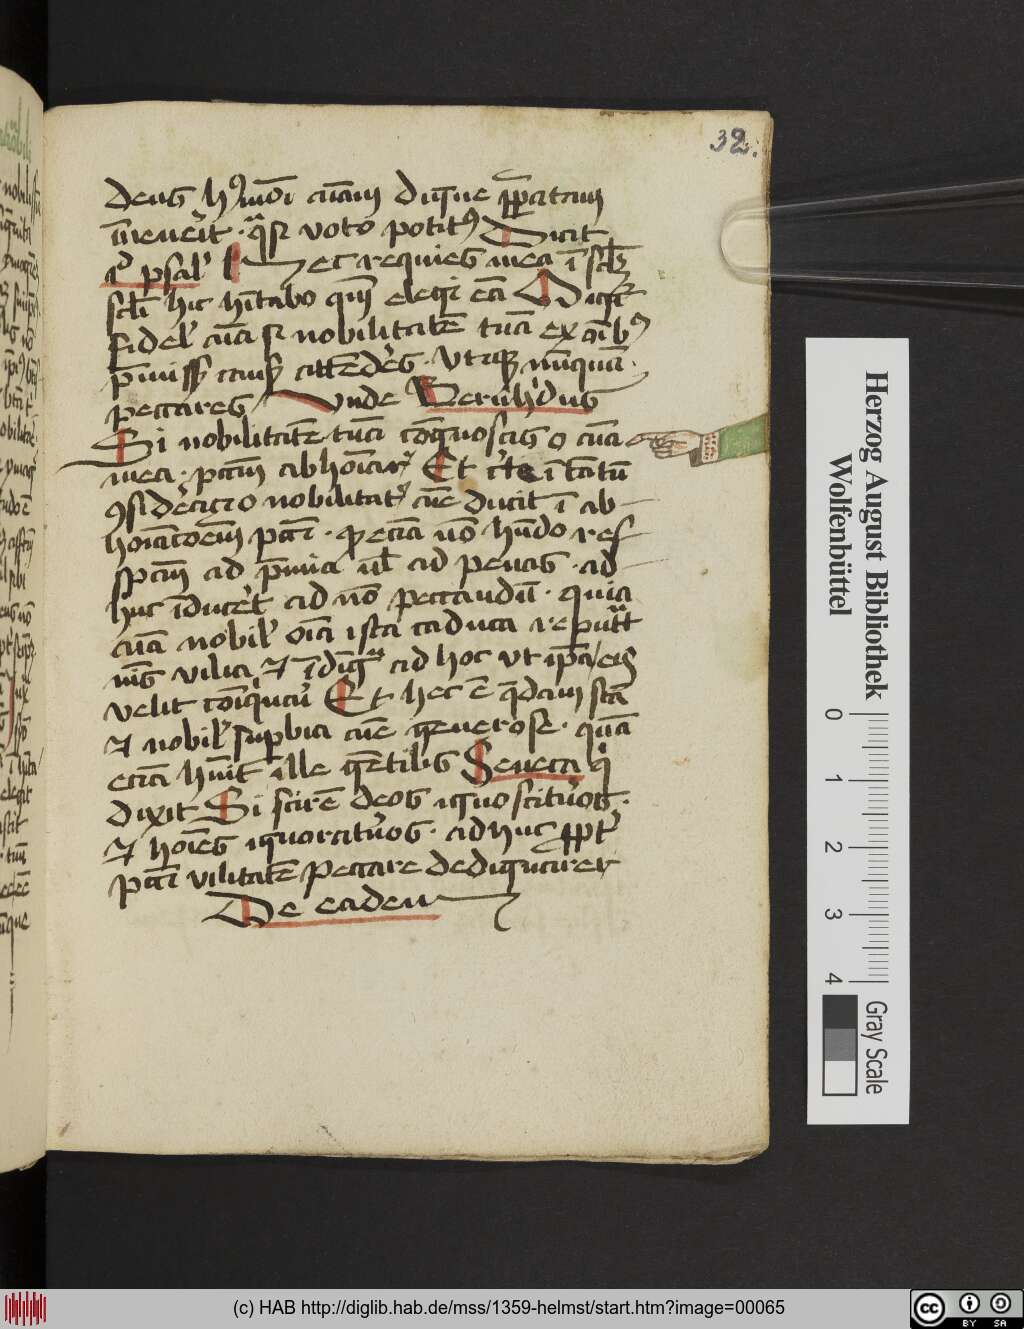 32.
deus hꝰmōi aīam digne p̄patam
īuen̄it · qͣsi voto potitꝰ Dicit
ī psal̕ Hec requies mea ī sc̄l̄m
sc̄l̄i hic hītabo qm̄ elegi eā Dicit̕
fidel̕ aīa si nobilitatē tuā ex oībꝰ
p̄miss̕ attēdēs · vtiqꝫ nūquā
peccares Vnde Bernh̕dus
Si nobilitatē tuā cōgnoscis o aīa
mea · pctm̄ abhomiar̕ Et ī tātū
ꝯsidēacio nobilitat̕ aīe ducit ī ab-
hoīacōem pctī · ꝙ eciā nō hn̄do res-
pctm̄ ad p̄mia ul̕ ad penas · ad
huc īducēt ad nō peccandū · quia
aīa nobil̕ oīa ista caduca reputat
nīs vilia ⁊ īdigͣ ad hoc vt ip̄a eis
velit coīquīari Et hec ē qdam sc̄ā
⁊ nobil̕ supbia aīe generose · quā
eciā hūit ille gētilis Seneca q̕
dixit Si scirē deos ignoscit̄uos ·
⁊ hoīes ignorat̄uos · adhuc ppt̕
pctī vilitatē peccare dedignarer
De eadem
Herzog August Bibliothek
Wolfenbüttel
0 1 2 3 4
Gray Scale
(c) HAB http://diglib.hab.de/mss/1359-helmst/start.htm?image=00065
cc BY SA